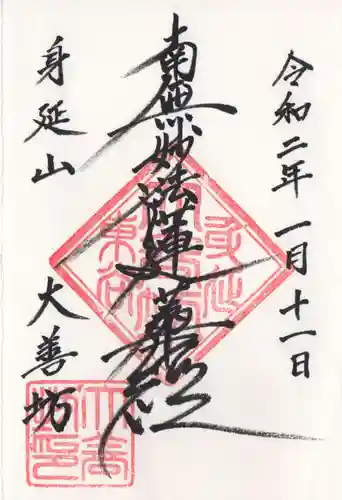 令和二年一月十一日
南無妙法蓮華経
身延山
大善坊